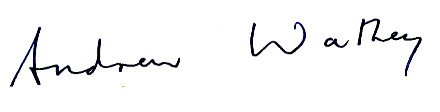 Andrew Wathey